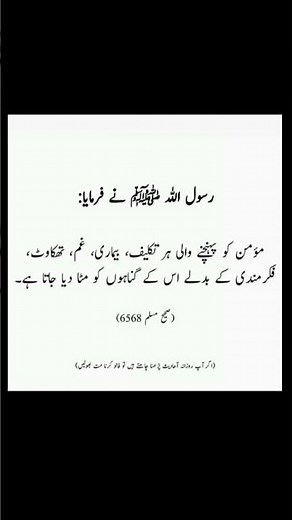 رسول اللہ ﷺ نے فرمایا:
مؤمن کو پہنچنے والی ہر تکلیف، بیماری، غم، تھکاوٹ،
فکرمندی کے بدلے اس کے گناہوں کو مٹا دیا جاتا ہے۔
(صحیح مسلم 6568)
(اگر آپ روزانہ احادیث پڑھنا چاہتے ہیں تو فالو کرنا مت بھولیں)